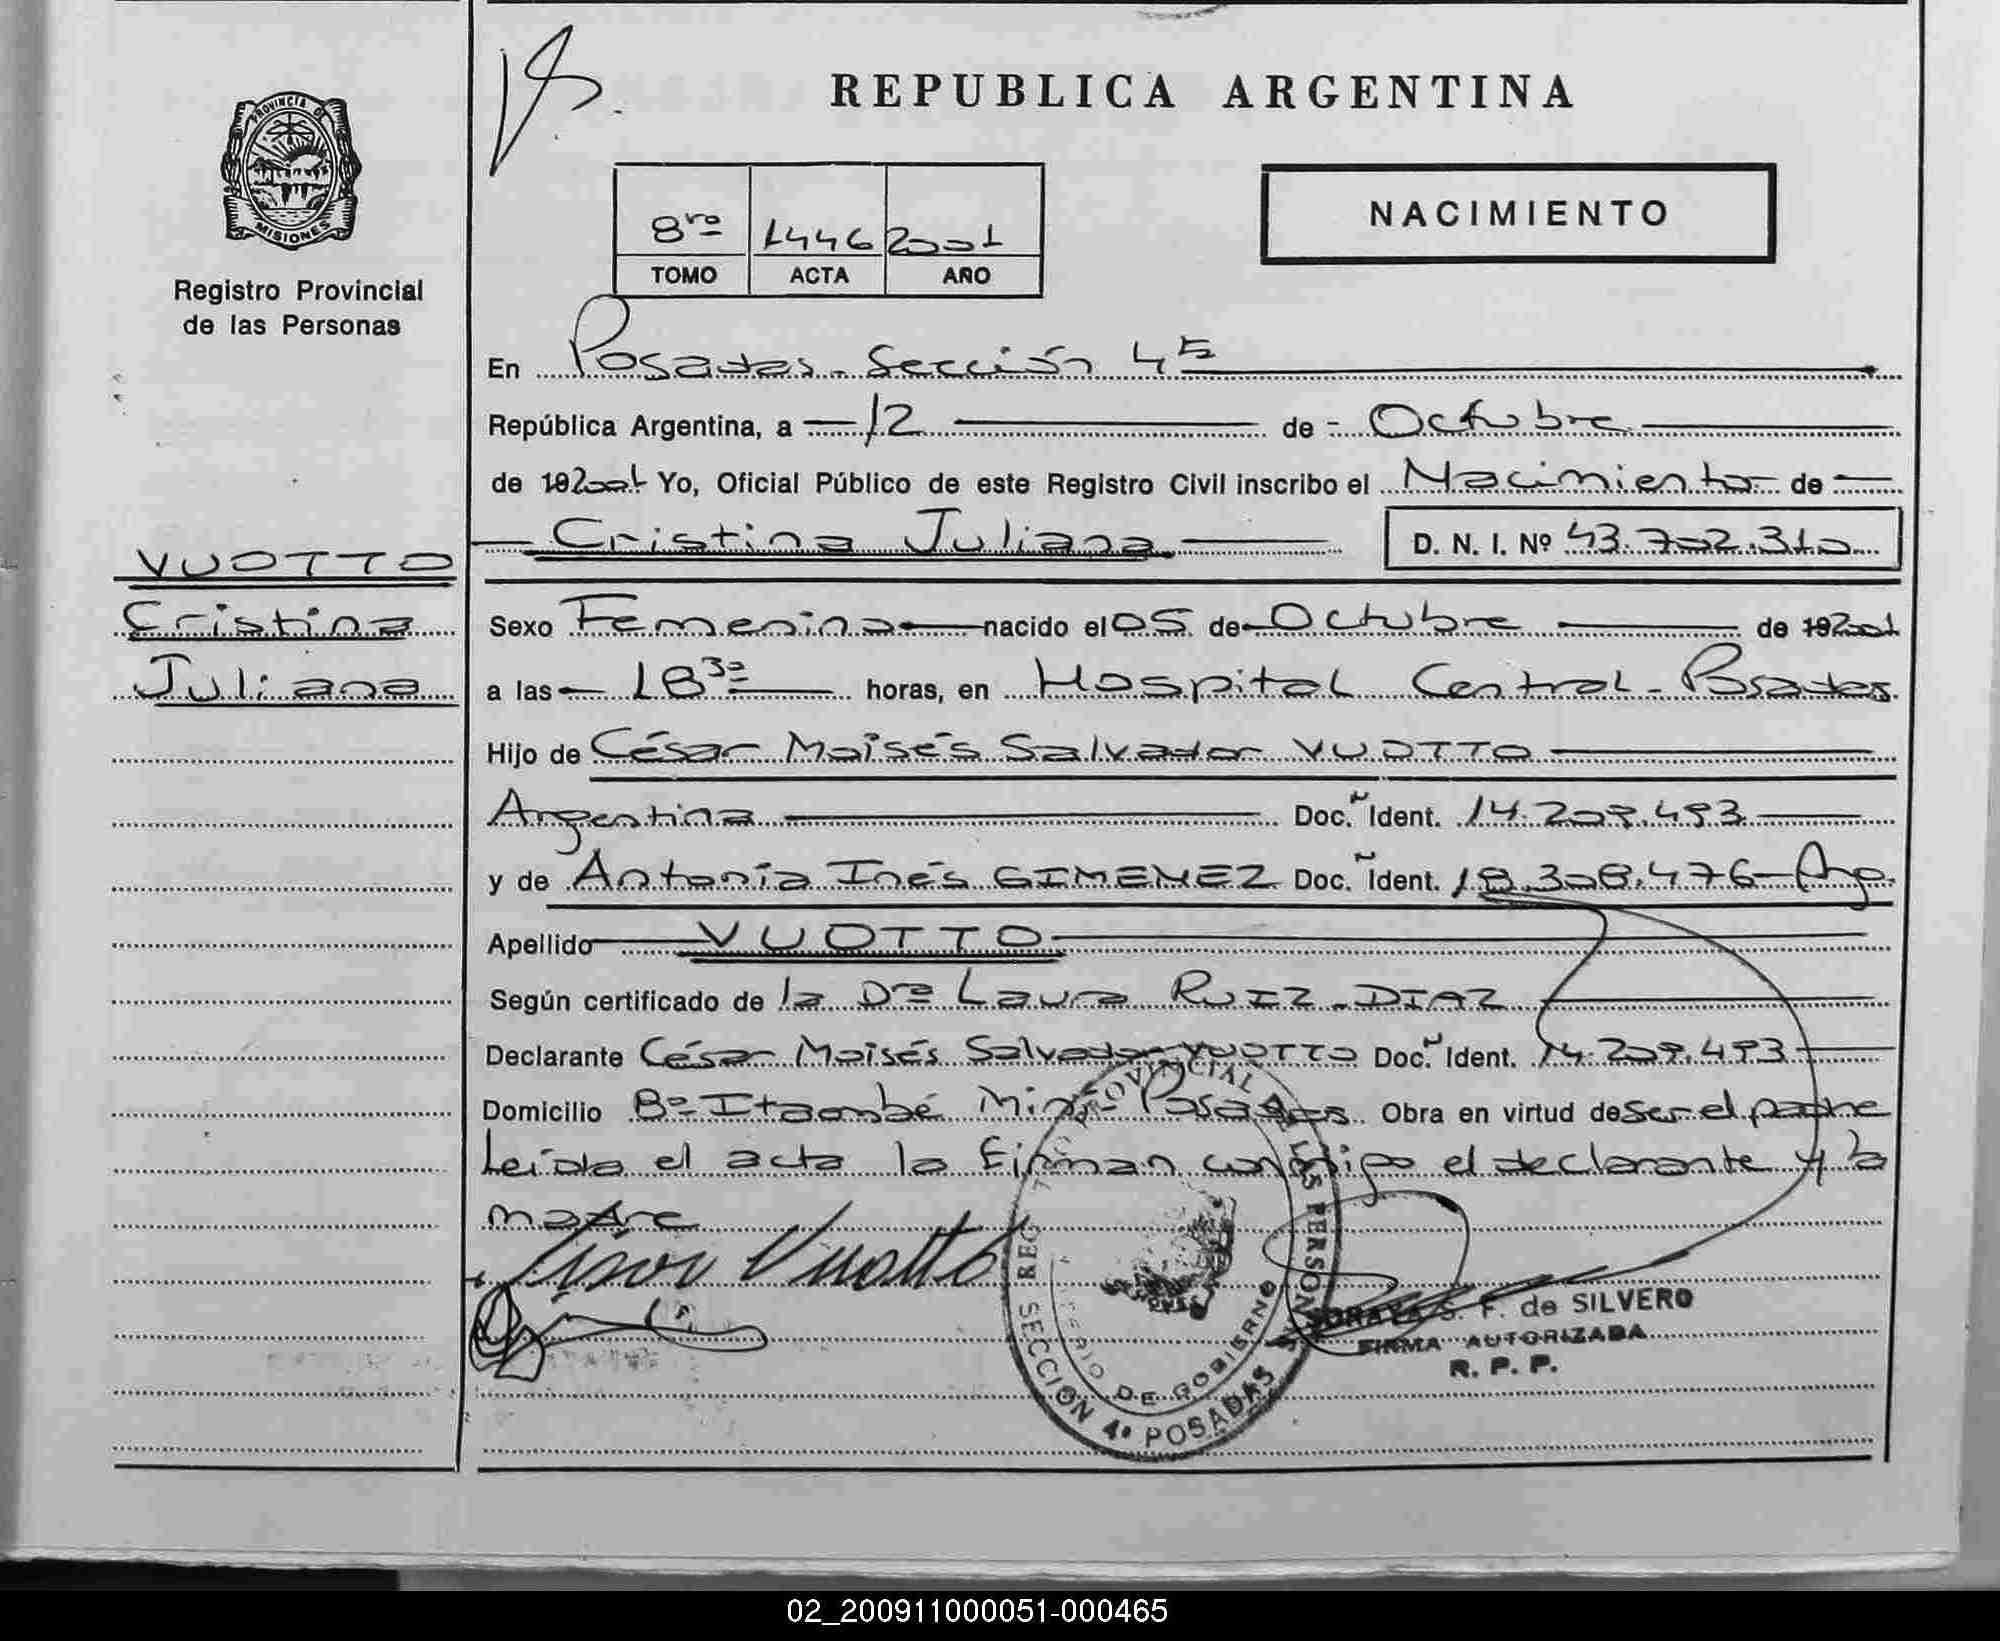 REPUBLICA ARGENTINA
PROVINCIA DE
MISIONES
Registro Provincial
de las Personas
8vo 1446 2001
TOMO ACTA AÑO
NACIMIENTO
En Posadas - Sección 4ta
República Argentina, a 12 de Octubre
de 192001 Yo, Oficial Público de este Registro Civil inscribo el Nacimiento de
Cristina Juliana D. N. I. Nº 43.702.310
VUOTTO
Cristina
Juliana
Sexo Femenina nacido el 05 de Octubre de 192001
a las 18 30 horas, en Hospital Central - Posadas
Hijo de César Moisés Salvador VUOTTO
Argentina Doc. Ident. 14.209.493
y de Antonia Inés GIMENEZ Doc. Ident. 18.308.476 - Arg.
Apellido VUOTTO
Según certificado de la Dra Laura RUIZ - DIAZ
Declarante César Moisés Salvador VUOTTO Doc. Ident. 14.209.493
Domicilio Bº Itaembé Miní - Posadas Obra en virtud de ser el padre
Leída el acta la firman conmigo el declarante y la
madre
Vuotto
SECCION 4ª POSADAS
DE GOBIERNO
SORAYA S. F. de SILVERO
FIRMA AUTORIZADA
R. P. P.
02_200911000051-000465